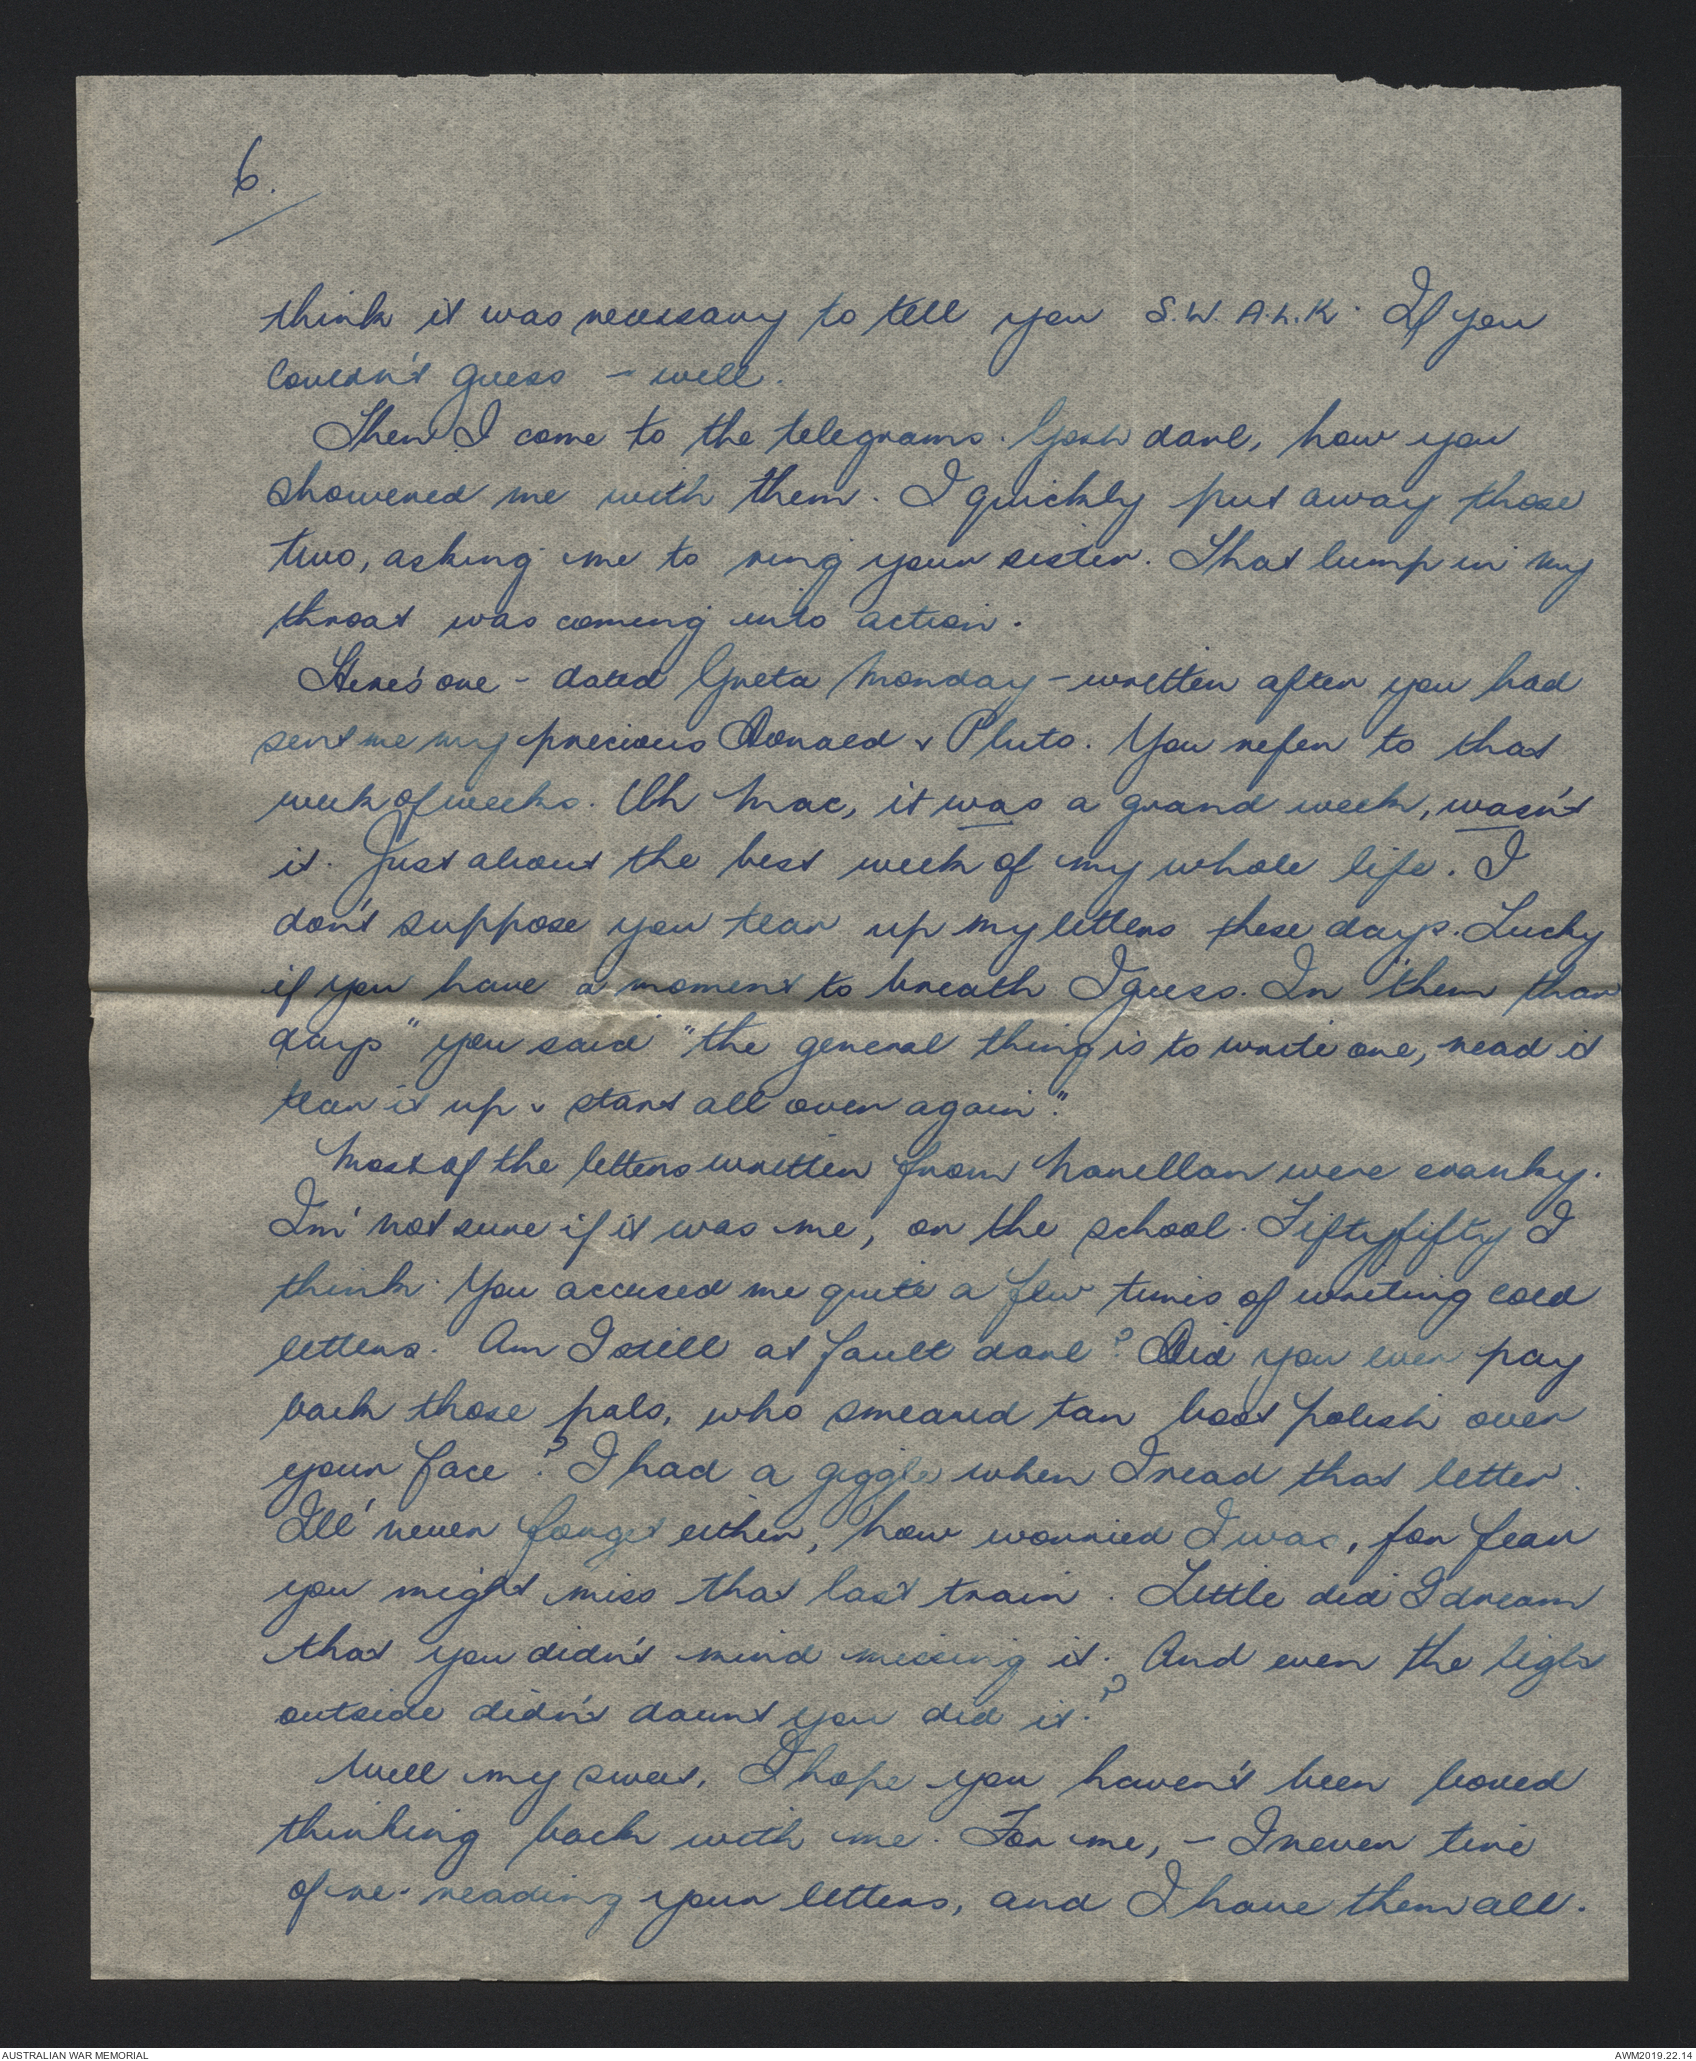 6.
think it was necessary to tell you S.W.A.L.K. If you
couldn't guess - well.
Then I come to the telegrams. Gosh darl, how you
showered me with them. I quickly put away those
two, asking me to ring your sister. That lump in my
throat was coming into action.
Here's one - dated Greta Monday - written after you had
sent me my precious Donald & Pluto. You refer to that
week of weeks. Oh Mac, it was a grand week, wasn't
it. Just about the best week of my whole life. I
don't suppose you tear up my letters these days. Lucky
if you have a moment to breath I guess. In "them thar
days" you said "the general thing is to write one, read it
tear it up & start all over again".
Most of the letters written from Narellan were cranky.
I'm not sure if it was me, or the school. Fifty fifty I
think. You accused me quite a few times of writing cold
letters. Am I still at fault darl? Did you ever pay
back those pals, who smeared tan boot polish over
your face? I had a giggle when I read that letter.
I'll never forget either, how worried I was, for fear
you might miss that last train. Little did I dream
that you didn't mind missing it. And even the light
outside didn't daunt you did it?
Well my sweet, I hope you haven't been bored
thinking back with me. For me, - I never tire
of re-reading your letters, and I have them all.
AUSTRALIAN WAR MEMORIAL
AWM2019.22.14